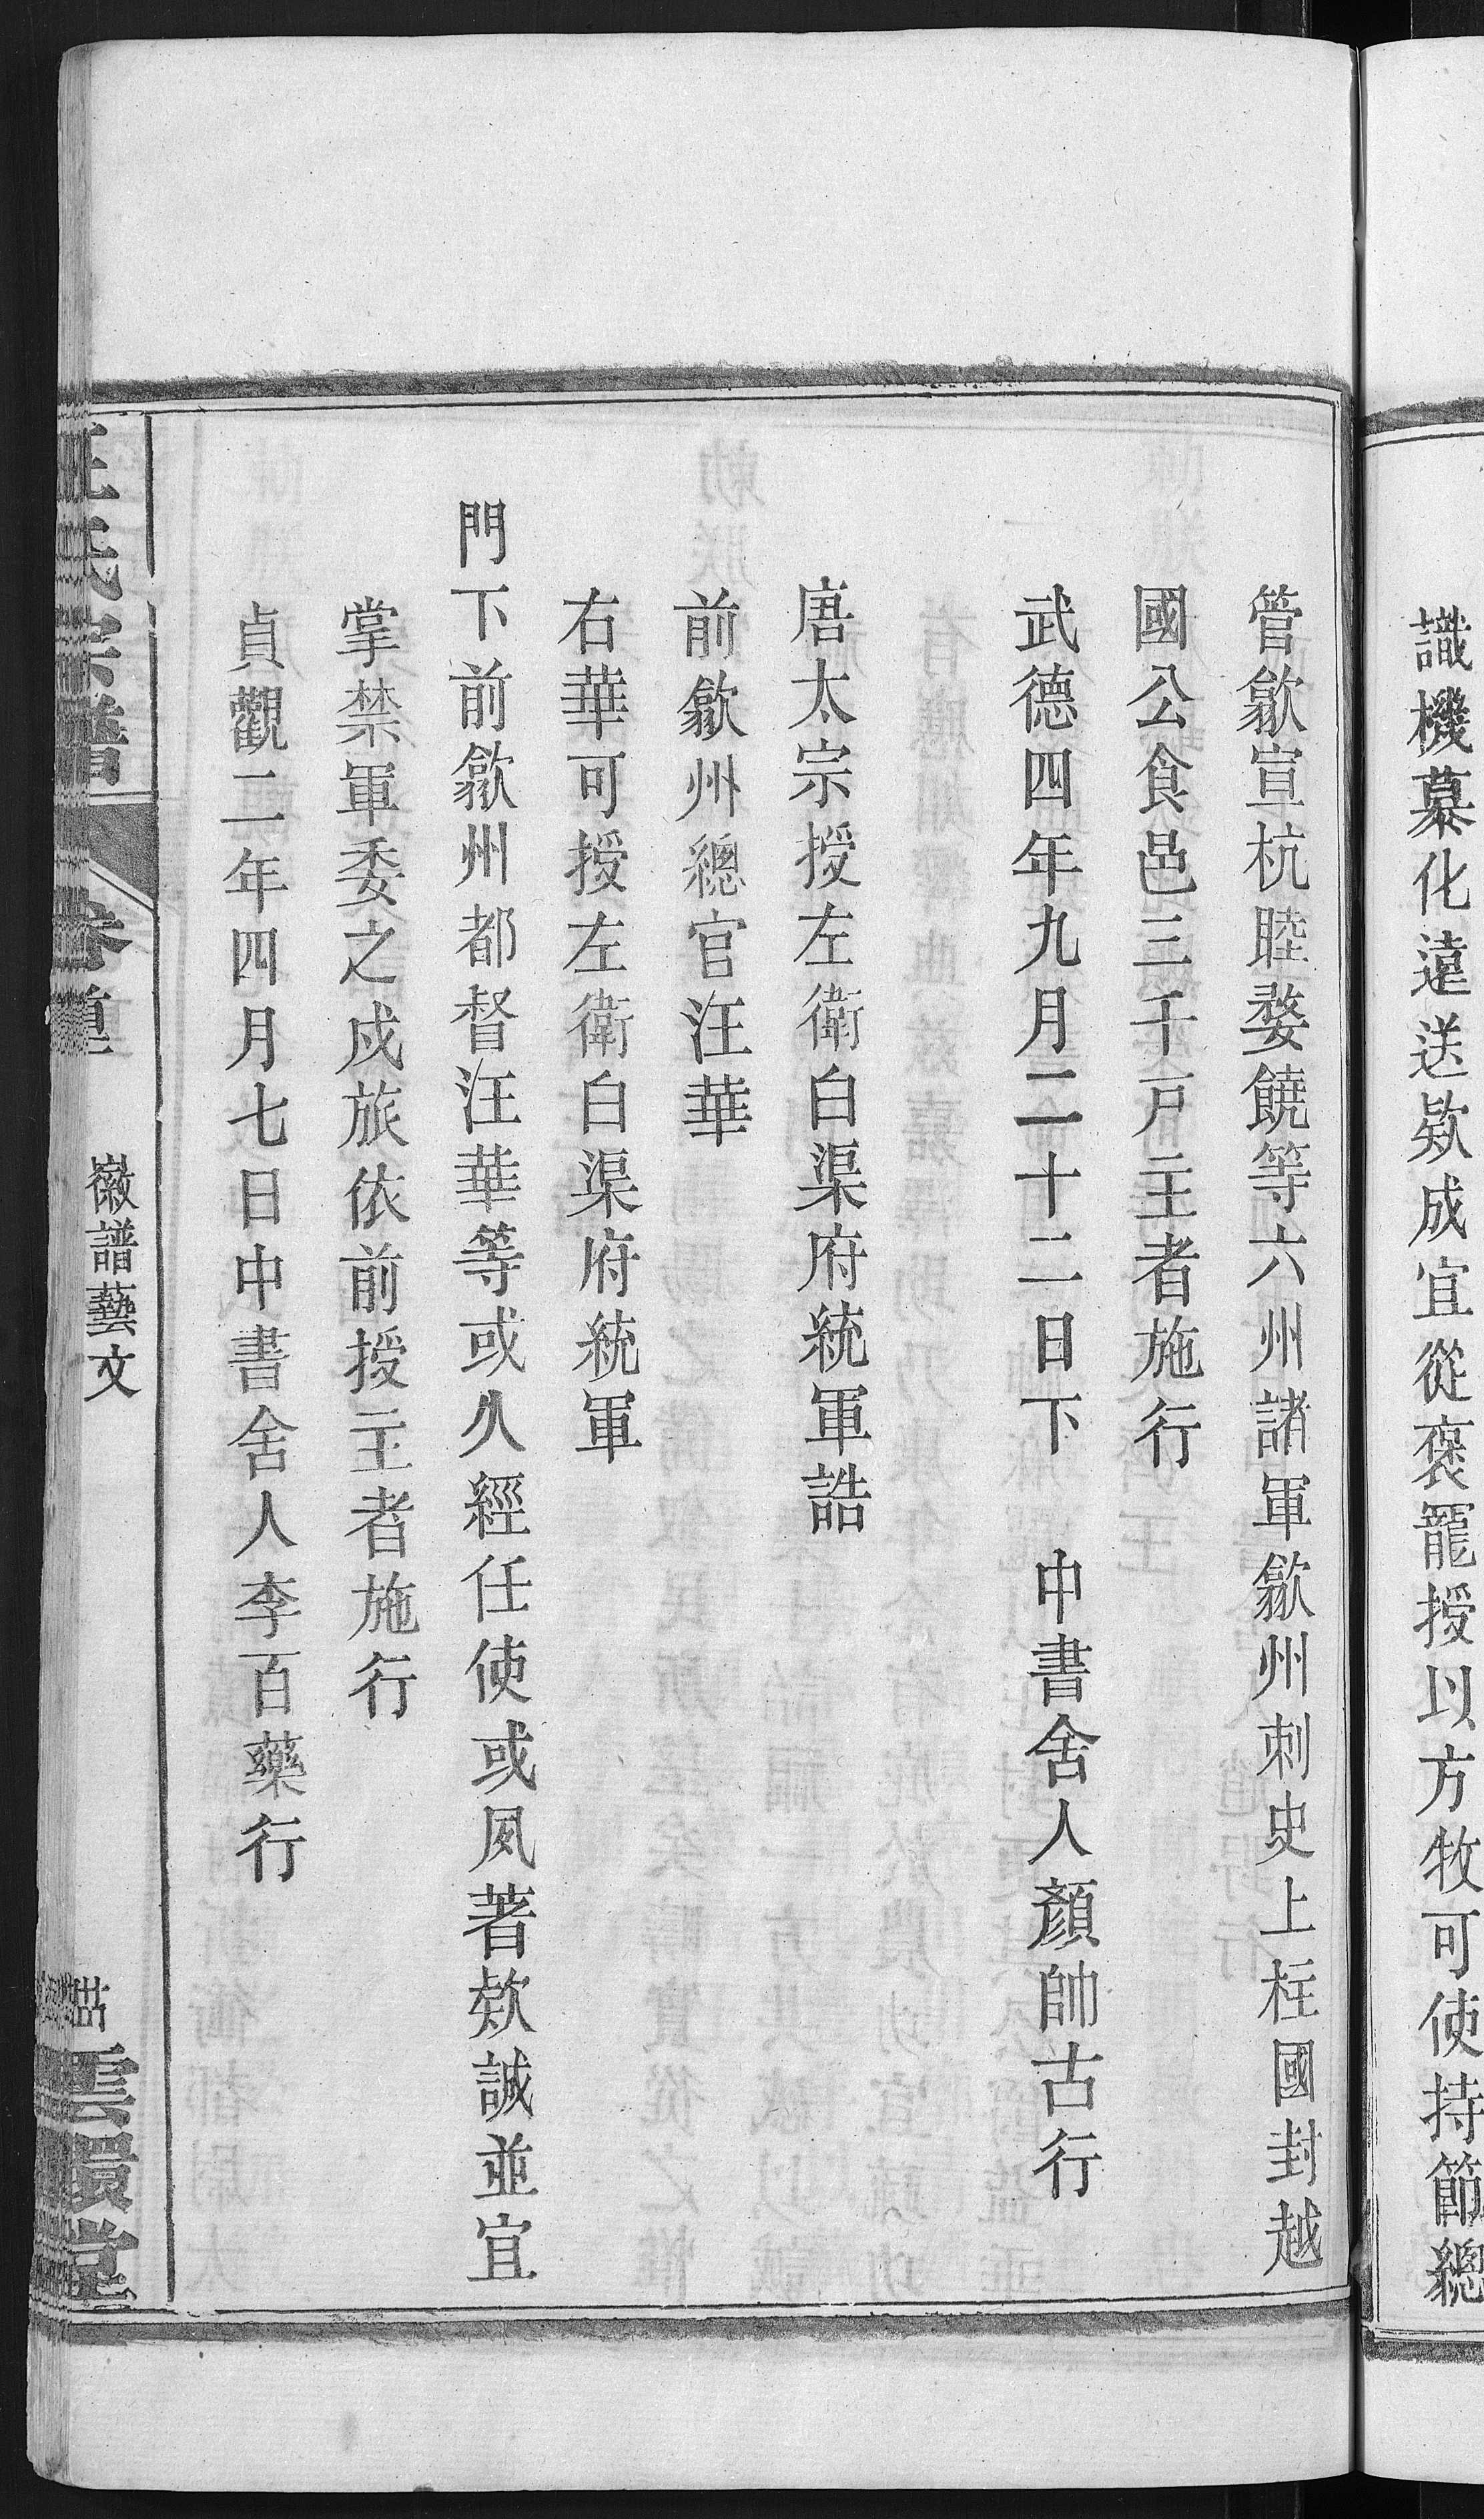 識機慕化遠送欵成宜從褒寵授以方牧可使持節總
管歙宣杭睦婺饒等六州諸軍歙州刺史上柱國封越
國公食邑三千戸主者施行
武德四年九月二十二日下　中書舍人顏帥古行
唐太宗授左衛白渠府統軍誥
前歙州總官汪華
右華可授左衛白渠府統軍
門下前歙州都督汪華等或久經任使或夙著欵誠並宜
掌禁軍委之戍旅依前授主者施行
貞觀二年四月七日中書舍人李百藥行
汪氏宗譜
徽譜藝文
雲環堂